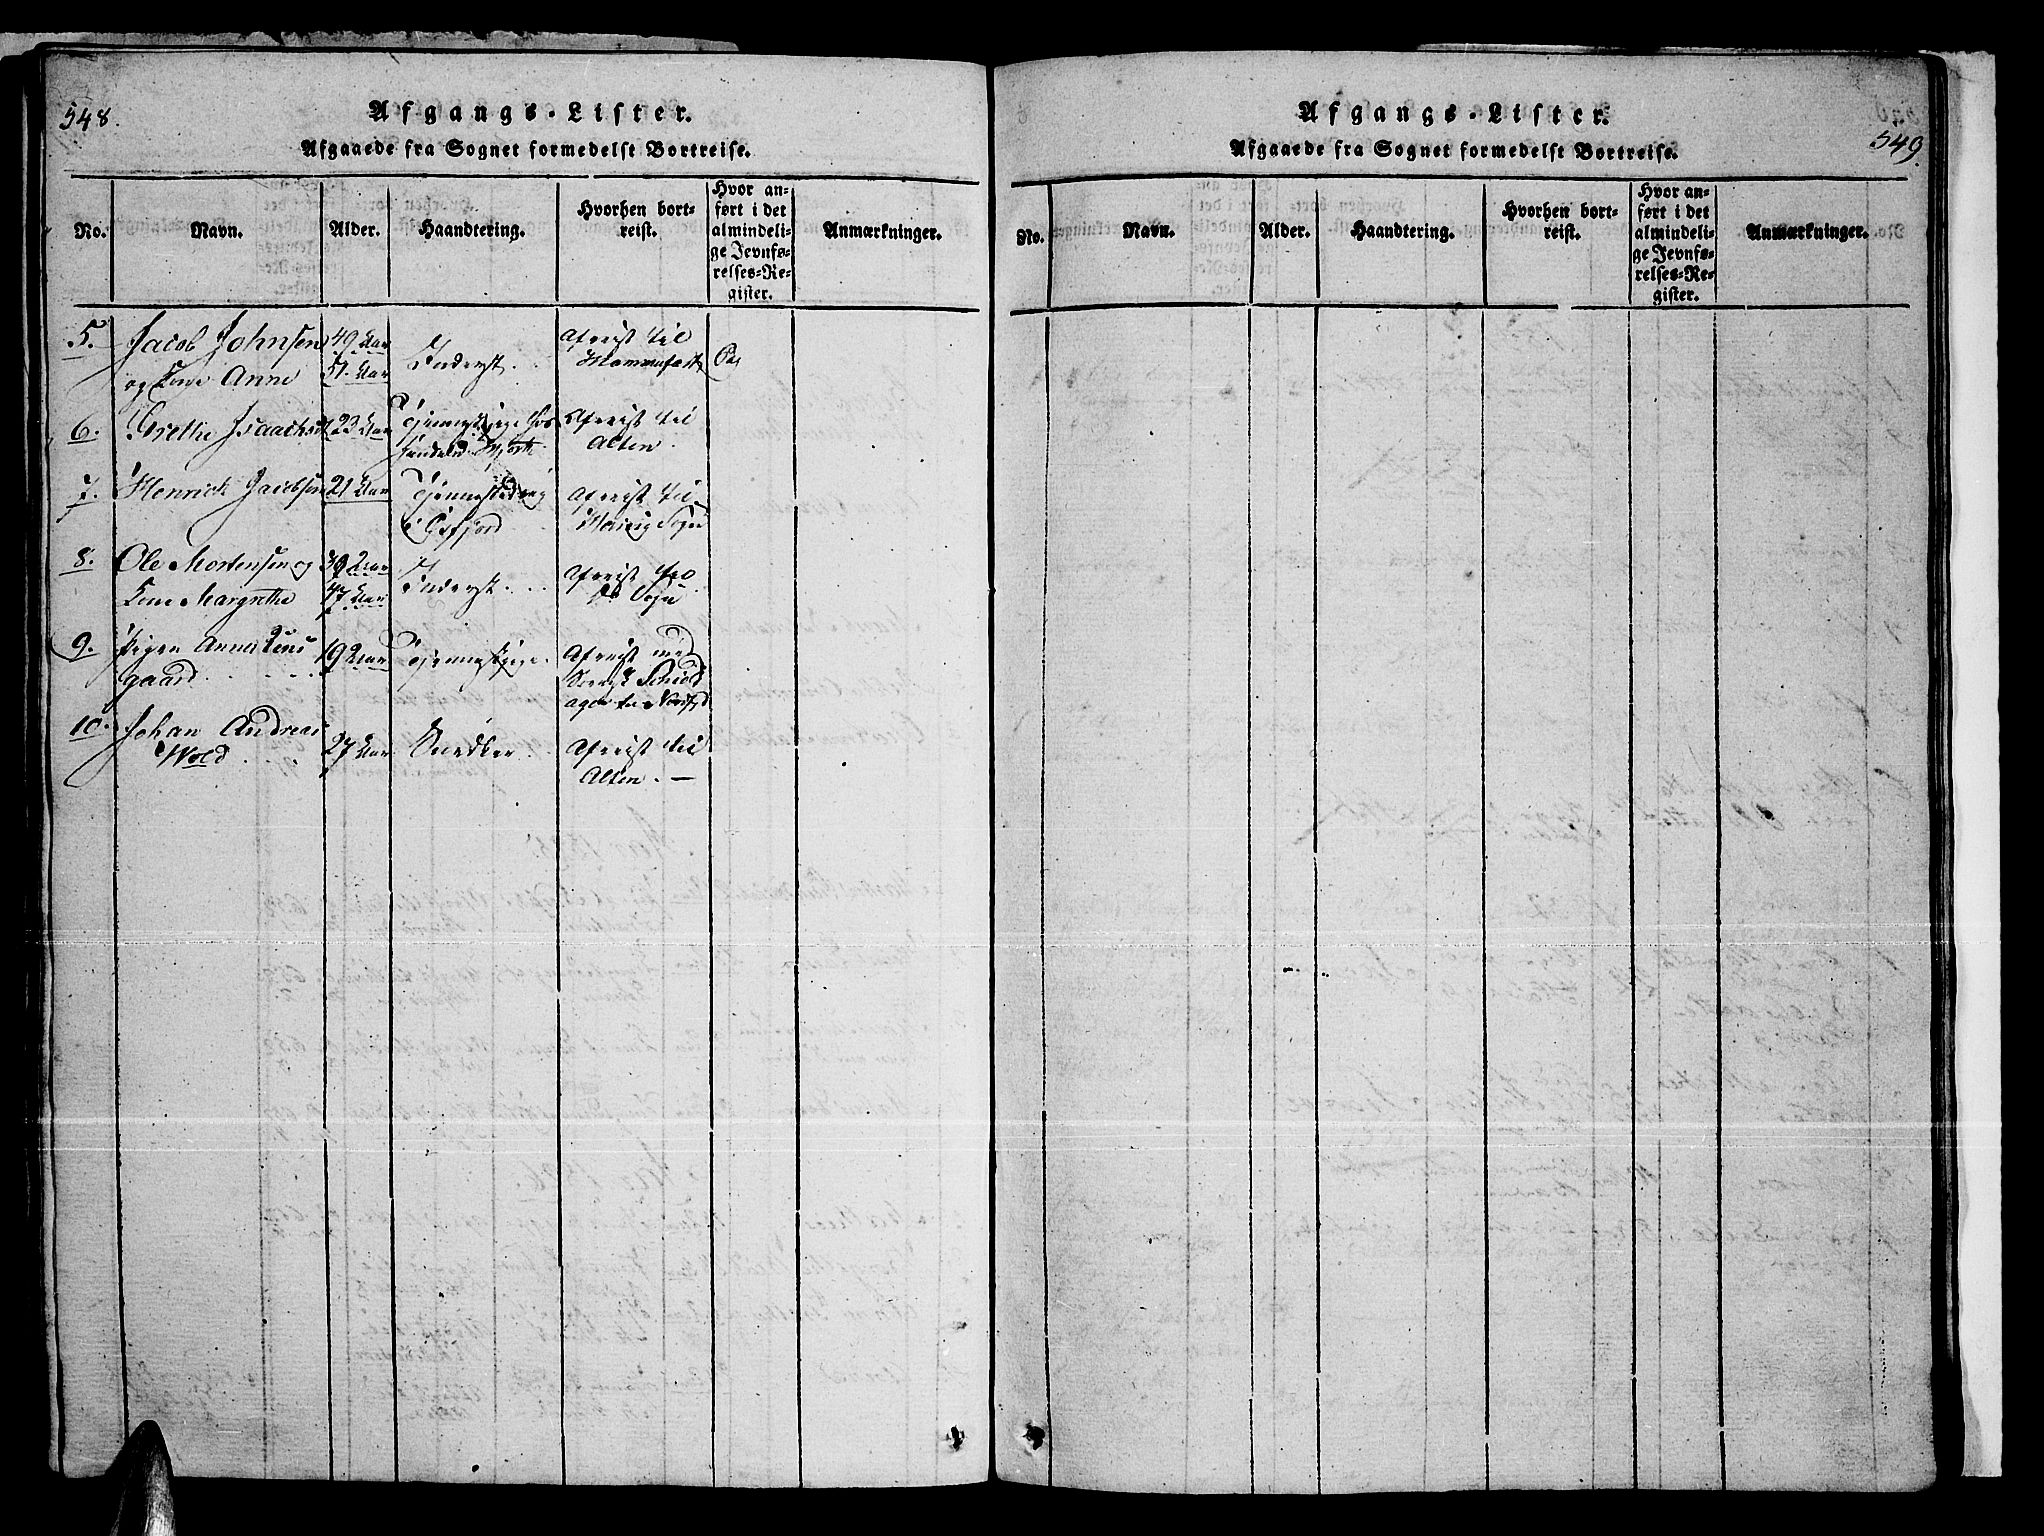 548.
Afgangs-Lister.
Afgaaede fra Sognet formedelst Bortreise.
No.
Navn.
Alder.
Haandtering.
Hvorhen bort-
reist.
Hvor an-
ført i det
almindeli-
ge Jevnfø-
relses-Re-
gister.
Anmærkninger.
5. Jacob Johnsen 49 Aar Inderst. Afreist til
og Anne 51 Aar Hammerfest
6. Grethe Isaachsd 23 Aar Tjenestepige hos Afreist til
Alten.
7. Henrick Jacobsen 21 Aar Tjenestedreng Afreist til
i Oxfjord Sogn
8. Ole Mortensen og 39 Aar Inderst... Afreist fra
Margrethe 47 Aar Sogn
9. Pigen Anne 19 Aar Tjenestepige. Afreist med
gaard.
10. Johan Andreas 27 Aar Snedker. Afreist til
Wold. Alten. —
549.
Afgangs-Lister.
Afgaaede fra Sognet formedelst Bortreise.
No.
Navn.
Alder.
Haandtering.
Hvorhen bort-
reist.
Hvor an-
ført i det
almindeli-
ge Jevnfø-
relses-Re-
gister.
Anmærkninger.